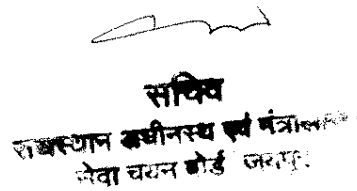 सचिव
राजस्थान अधीनस्थ एवं मंत्रालयिक
सेवा चयन बोर्ड जयपुर